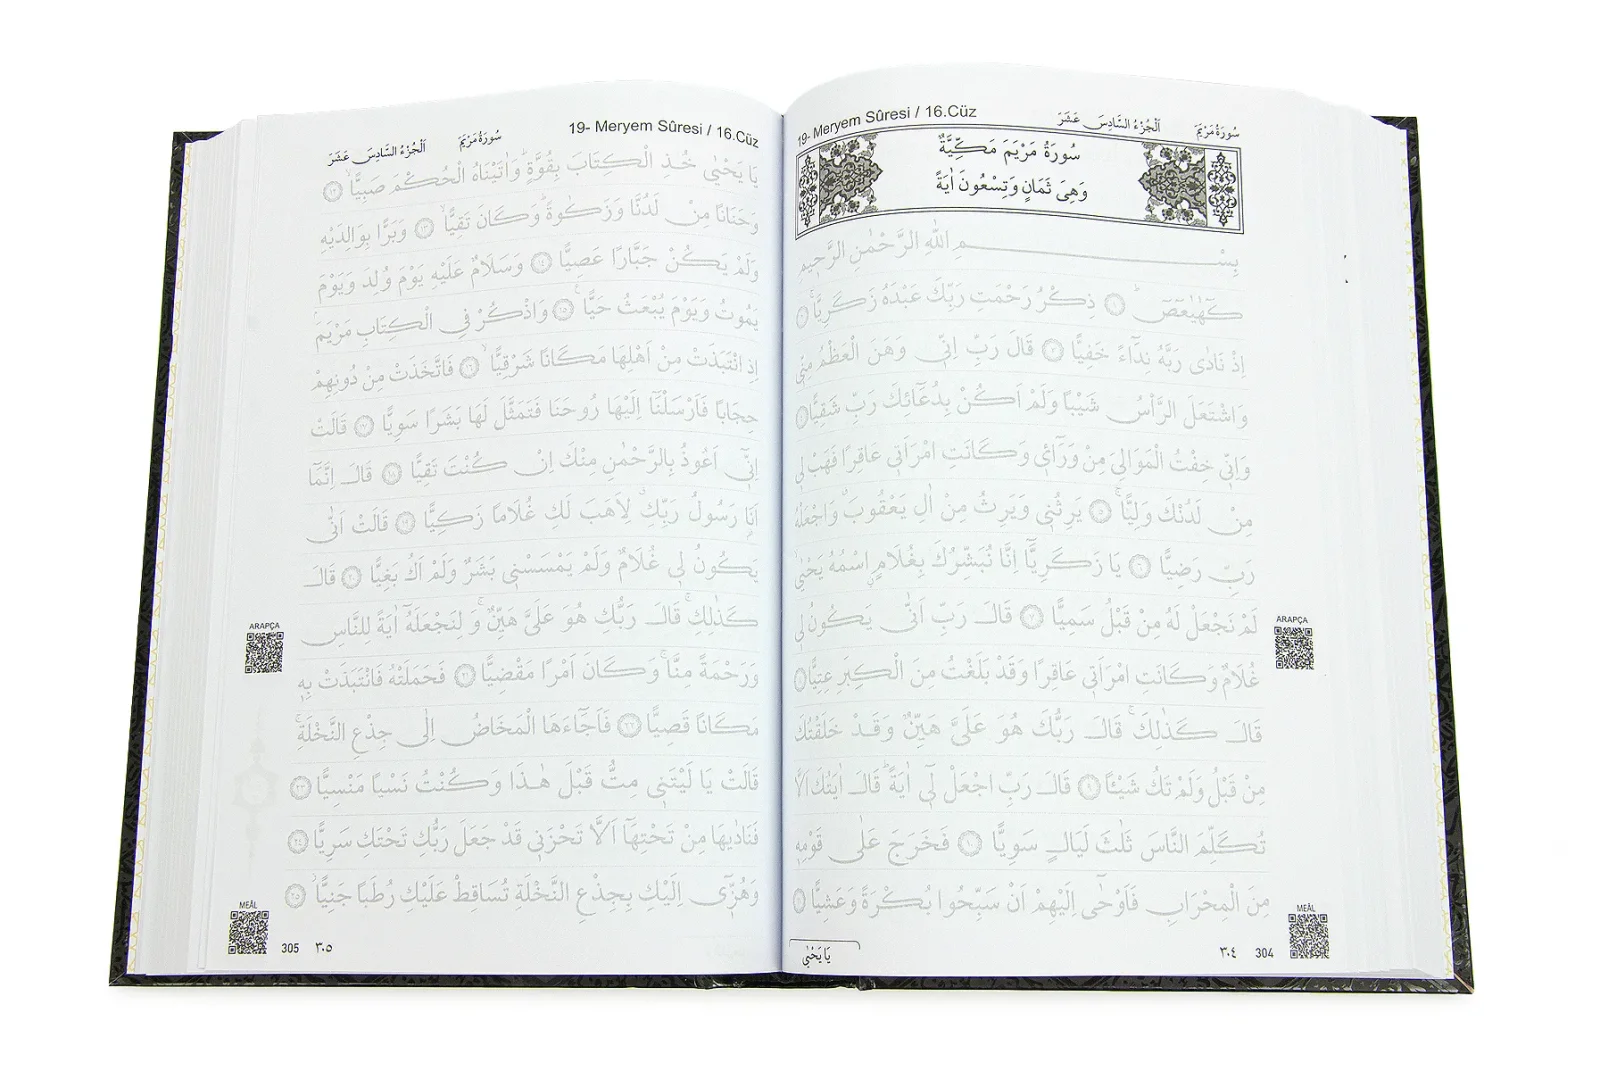 سُورَةُ مَرْيَمَ
اَلْجُزْءُ السَّادِسَ عَشَرَ
19- Meryem Sûresi / 16.Cüz
سُورَةُ مَرْيَمَ مَكِّيَّةٌ
وَهِيَ ثَمَانٍ وَتِسْعُونَ اٰيَةً
بِسْمِ اللّٰهِ الرَّحْمٰنِ الرَّحِيمِ
كٓهٰيٰعٓصٓ ۚ ﴿١﴾ ذِكْرُ رَحْمَتِ رَبِّكَ عَبْدَهُ زَكَرِيَّا ۚ ﴿٢﴾
اِذْ نَادٰى رَبَّهُ نِدَٓاءً خَفِيًّا ﴿٣﴾ قَالَ رَبِّ اِنّ۪ي وَهَنَ الْعَظْمُ مِنّ۪ي
وَاشْتَعَلَ الرَّأْسُ شَيْبًا وَلَمْ اَكُنْ بِدُعَٓائِكَ رَبِّ شَقِيًّا ﴿٤﴾
وَاِنّ۪ي خِفْتُ الْمَوَالِيَ مِنْ وَرَٓاء۪ي وَكَانَتِ امْرَاَت۪ي عَاقِرًا فَهَبْ ل۪ي
مِنْ لَدُنْكَ وَلِيًّا ۙ ﴿٥﴾ يَرِثُن۪ي وَيَرِثُ مِنْ اٰلِ يَعْقُوبَ ۗ وَاجْعَلْهُ
رَبِّ رَضِيًّا ﴿٦﴾ يَا زَكَرِيَّٓا اِنَّا نُبَشِّرُكَ بِغُلَامٍ اسْمُهُ يَحْيٰى
لَمْ نَجْعَلْ لَهُ مِنْ قَبْلُ سَمِيًّا ﴿٧﴾ قَالَ رَبِّ اَنّٰى يَكُونُ ل۪ي
غُلَامٌ وَكَانَتِ امْرَاَت۪ي عَاقِرًا وَقَدْ بَلَغْتُ مِنَ الْكِبَرِ عِتِيًّا ﴿٨﴾
قَالَ كَذٰلِكَ ۚ قَالَ رَبُّكَ هُوَ عَلَيَّ هَيِّنٌ وَقَدْ خَلَقْتُكَ
مِنْ قَبْلُ وَلَمْ تَكُ شَيْـًٔا ﴿٩﴾ قَالَ رَبِّ اجْعَلْ ل۪ٓي اٰيَةً ۜ قَالَ اٰيَتُكَ اَلَّا
تُكَلِّمَ النَّاسَ ثَلٰثَ لَيَالٍ سَوِيًّا ﴿١٠﴾ فَخَرَجَ عَلٰى قَوْمِه۪
مِنَ الْمِحْرَابِ فَاَوْحٰٓى اِلَيْهِمْ اَنْ سَبِّحُوا بُكْرَةً وَعَشِيًّا ﴿١١﴾
ARAPÇA
MEÂL
٣٠٤ 304
يَا يَحْيٰى
سُورَةُ مَرْيَمَ
اَلْجُزْءُ السَّادِسَ عَشَرَ
19- Meryem Sûresi / 16.Cüz
يَا يَحْيٰى خُذِ الْكِتَابَ بِقُوَّةٍ ۜ وَاٰتَيْنَاهُ الْحُكْمَ صَبِيًّا ۙ ﴿١٢﴾
وَحَنَانًا مِنْ لَدُنَّا وَزَكٰوةً ۜ وَكَانَ تَقِيًّا ۙ ﴿١٣﴾ وَبَرًّا بِوَالِدَيْهِ
وَلَمْ يَكُنْ جَبَّارًا عَصِيًّا ﴿١٤﴾ وَسَلَامٌ عَلَيْهِ يَوْمَ وُلِدَ وَيَوْمَ
يَمُوتُ وَيَوْمَ يُبْعَثُ حَيًّا ۟ ﴿١٥﴾ وَاذْكُرْ فِي الْكِتَابِ مَرْيَمَ ۢ
اِذِ انْتَبَذَتْ مِنْ اَهْلِهَا مَكَانًا شَرْقِيًّا ۙ ﴿١٦﴾ فَاتَّخَذَتْ مِنْ دُونِهِمْ
حِجَابًا فَاَرْسَلْنَٓا اِلَيْهَا رُوحَنَا فَتَمَثَّلَ لَهَا بَشَرًا سَوِيًّا ﴿١٧﴾ قَالَتْ
اِنّ۪ٓي اَعُوذُ بِالرَّحْمٰنِ مِنْكَ اِنْ كُنْتَ تَقِيًّا ﴿١٨﴾ قَالَ اِنَّمَٓا
اَنَا رَسُولُ رَبِّكِ ۗ لِاَهَبَ لَكِ غُلَامًا زَكِيًّا ﴿١٩﴾ قَالَتْ اَنّٰى
يَكُونُ ل۪ي غُلَامٌ وَلَمْ يَمْسَسْن۪ي بَشَرٌ وَلَمْ اَكُ بَغِيًّا ﴿٢٠﴾ قَالَ
كَذٰلِكِ ۚ قَالَ رَبُّكِ هُوَ عَلَيَّ هَيِّنٌ ۚ وَلِنَجْعَلَهُٓ اٰيَةً لِلنَّاسِ
وَرَحْمَةً مِنَّا ۚ وَكَانَ اَمْرًا مَقْضِيًّا ﴿٢١﴾ فَحَمَلَتْهُ فَانْتَبَذَتْ بِه۪
مَكَانًا قَصِيًّا ﴿٢٢﴾ فَاَجَٓاءَهَا الْمَخَاضُ اِلٰى جِذْعِ النَّخْلَةِ ۚ
قَالَتْ يَا لَيْتَن۪ي مِتُّ قَبْلَ هٰذَا وَكُنْتُ نَسْيًا مَنْسِيًّا ﴿٢٣﴾
فَنَادٰيهَا مِنْ تَحْتِهَٓا اَلَّا تَحْزَن۪ي قَدْ جَعَلَ رَبُّكِ تَحْتَكِ سَرِيًّا ﴿٢٤﴾
وَهُزّ۪ٓي اِلَيْكِ بِجِذْعِ النَّخْلَةِ تُسَاقِطْ عَلَيْكِ رُطَبًا جَنِيًّا ۘ ﴿٢٥﴾
ARAPÇA
MEÂL
305 ٣٠٥